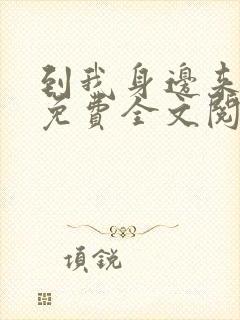 到我身邊来
免費全文閱
項銳